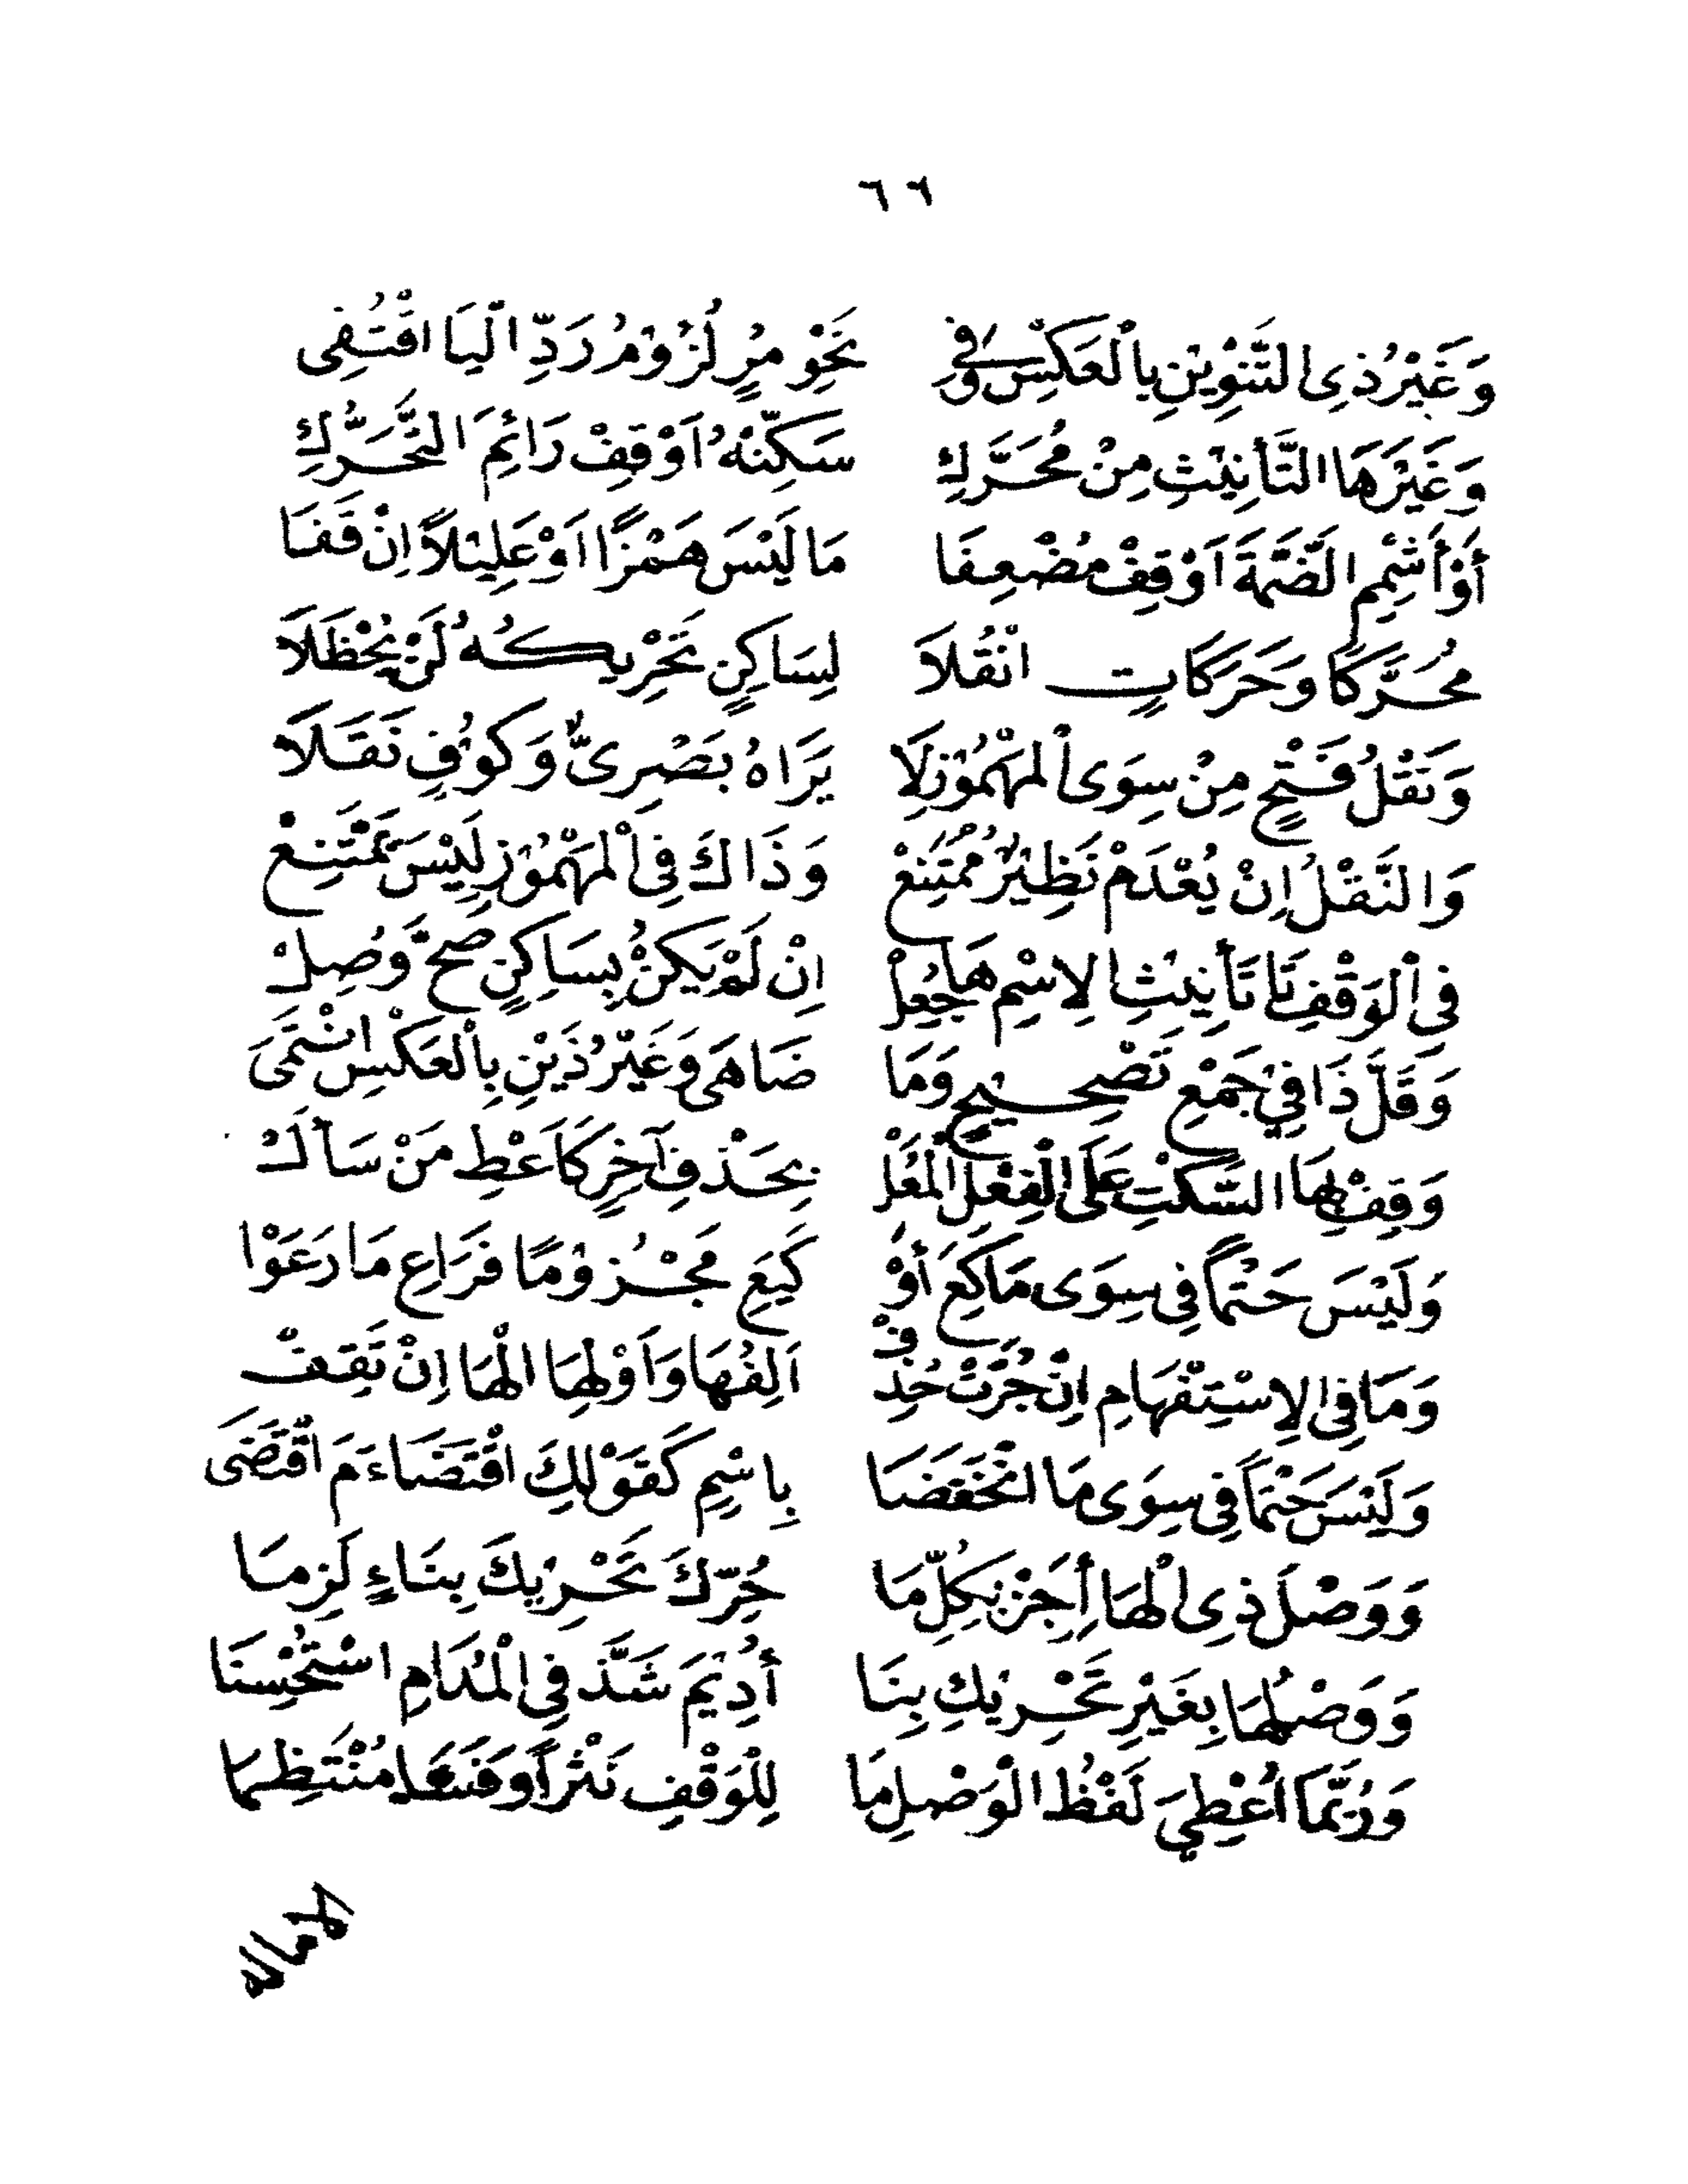 ٦٦
وَغَيْرُ ذِى التَّنْوِيْنِ بِالْعَكْسِ وَفِى نَحْوِ مُرٍ لُزُوْمُ رَدِّ الْيَا اقْتُفِى
وَغَيْرَ هَا التَّأْنِيْثِ مِنْ مُحَرَّكِ سَكِّنْهُ اَوْ قِفْ رَائِمَ التَّحَرُّكِ
أَوْ أَشْمِمِ الضَّمَّةَ اَوْ قِفْ مُضْعِفَا مَا لَيْسَ هَمْزًا اَوْ عَلِيْلاً اِنْ قَفَا
مُحَرَّكًا وَحَرَكَاتٍ انْقُلاَ لِسَاكِنٍ تَحْرِيكُهُ لَنْ يُحْظَلاَ
وَنَقْلُ فَتْحٍ مِنْ سِوَى الْمَهْمُوْزِ لاَ يَرَاهُ بَصْرِىٌّ وَكُوْفٍ نَقَلاَ
وَالنَّقْلُ اِنْ يُعْدَمْ نَظِيْرٌ مُمْتَنِعْ وَذَاكَ فِى الْمَهْمُوْزِ لَيْسَ يَمْتَنِعْ
فِى الْوَقْفِ تَا تَأْنِيْثِ الاِسْمِ هَا جُعِلْ اِنْ لَمْ يَكُنْ بِسَاكِنٍ صَحَّ وُصِلْ
وَقَلَّ ذَا فِيْ جَمْعِ تَصْحِيْحٍ وَمَا ضَاهَى وَغَيْرُ ذَيْنِ بِالْعَكْسِ انْتَمَى
وَقِفْ بِهَا السَّكْتِ عَلَى الْفِعْلِ الْمُعَلْ بِحَذْفِ آخِرٍ كَأَعْطِ مَنْ سَأَلْ
وَلَيْسَ حَتْمًا فِى سِوَى مَا كَعِ أَوْ كَيَعِ مَجْزُوْمًا فَرَاعِ مَا رَعَوْا
وَمَا فِى الاِسْتِفْهَامِ اِنْ جُرَّتْ حُذِفْ اَلِفُهَا وَاَوْلِهَا الْهَا اِنْ تَقِفْ
وَلَيْسَ حَتْمًا فِى سِوَى مَا انْخَفَضَا بِاسْمٍ كَقَوْلِكَ اقْتَضَاءَ مَ اقْتَضَى
وَوَصْلَ ذِى الْهَا أَجِزْ بِكُلِّ مَا حُرِّكَ تَحْرِيْكَ بِنَاءٍ لَزِمَا
وَوَصْلُهَا بِغَيْرِ تَحْرِيْكِ بِنَا أُدِيْمَ شَذَّ فِى الْمُدَامِ اسْتُحْسِنَا
وَرُبَّمَا اُعْطِيَ لَفْظُ الْوَصْلِ مَا لِلْوَقْفِ نَثْرًا وَفَشَا مُنْتَظِمَا
الامالة